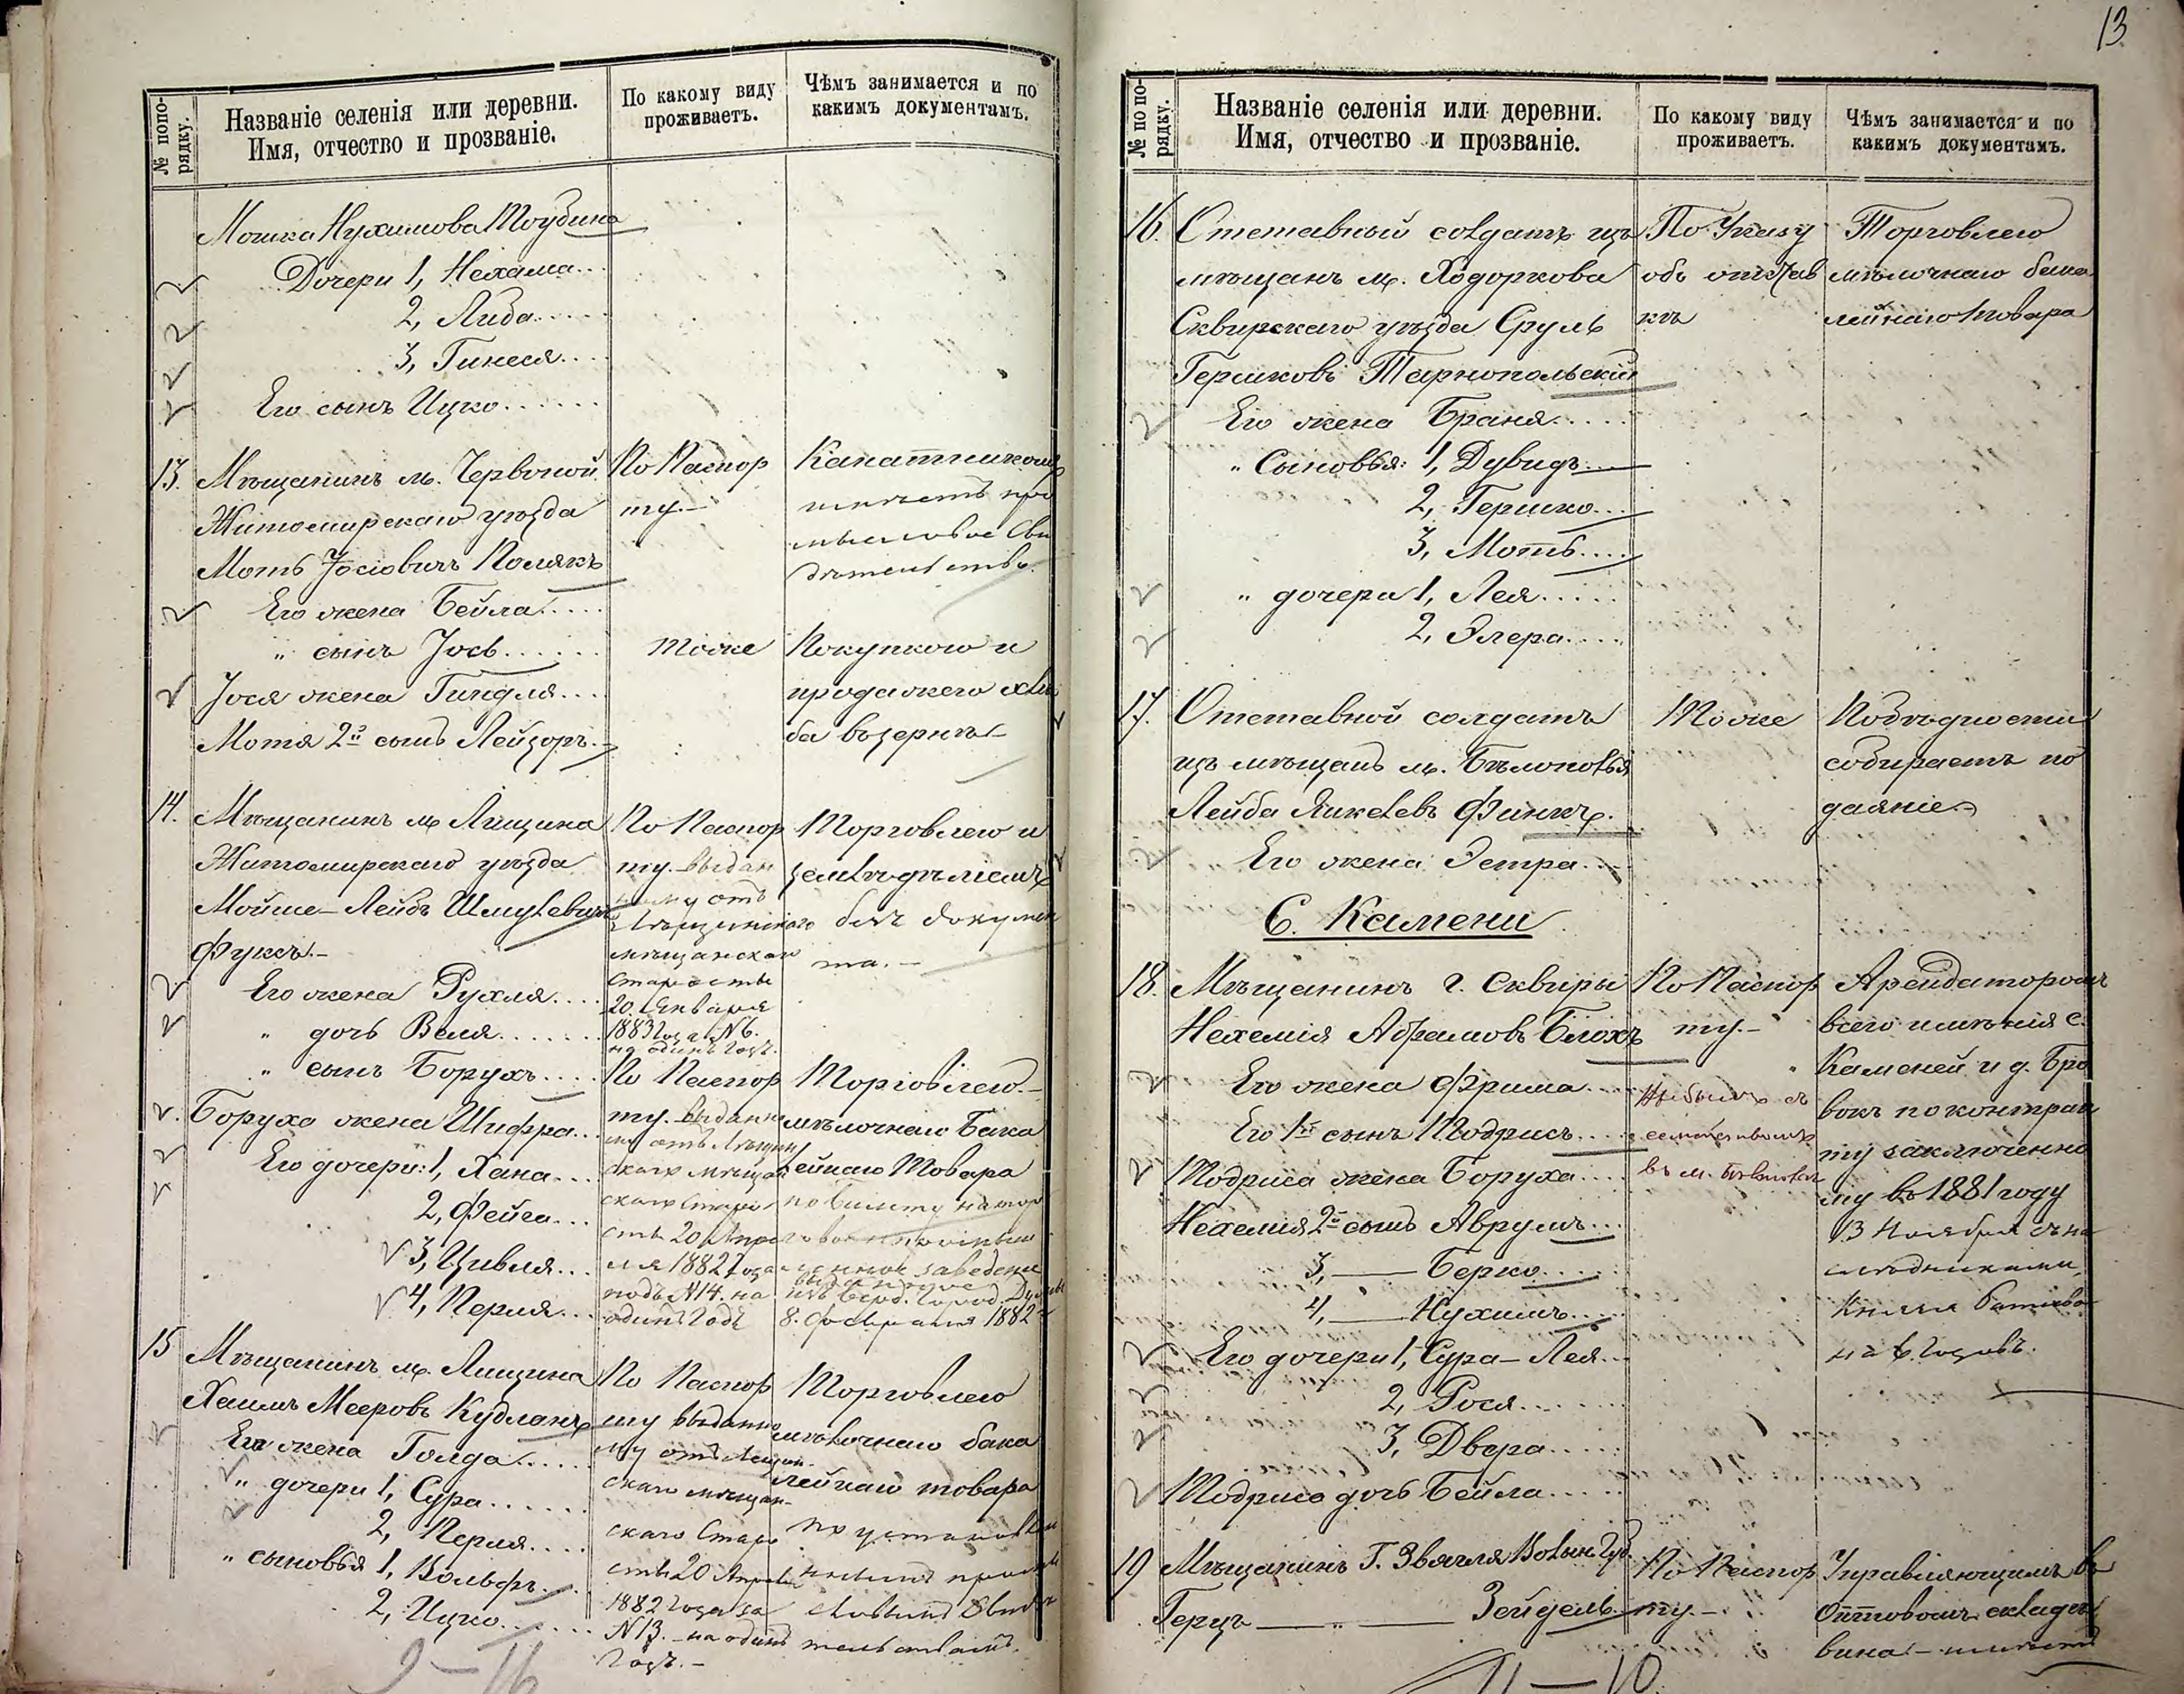 № попо-
рядку.
Названіе селенія или деревни.
Имя, отчество и прозваніе.
По какому виду
проживаетъ.
Чѣмъ занимается и по
какимъ документамъ.
Мошка Нухимова Тоубина
Дочери 1, Нехама...
2, Либа.....
3, Гинеся....
Его сынъ Ицко......
13. Мѣщанинъ м. Червоной
Житомирскаго уѣзда
Моть Іосіовичъ Полякъ
Его жена Бейла.....
" сынъ Іось......
Іося жена Гиндля....
Мотя 2й сынъ Лейзоръ.-
По Паспор
ту.-
тоже
Канатникомъ
имѣетъ про
мысловое Сви
дѣтельство.
Покупкою и
продажею хлѣ
ба взернѣ
14. Мѣщанинъ м. Лещина
Житомирскаго уѣзда
Мойше-Лейбъ Шмулевичъ
Фуксъ.-
Его жена Рухля....
" дочь Веля.......
" сынъ Борухъ.....
Боруха жена Шифра...
Его дочери: 1, Хана...
2, Фейга...
3, Цивля...
4, Перля...
По Паспор
ту. выдан
ному отъ
Лещинскаго
мѣщанскаго
старосты
20. Января
1883 года №6.
на одинъ годъ.
По Паспор
ту. выданно
му отъ Лещин
скаго мѣщан
скаго Старо
сты 20 Апре
ля 1882 года
подъ №14. на
одинъ Годъ
Торговлею и
земледѣліемъ
безъ докумен
та.-
Торговлею.-
мѣлочнаго Бака
лейнаго Товара
по билету на тор
заведеніе
выданное
8. Февраля 1882
15 Мѣщанинъ м. Лещина
Хаимъ Мееровъ Кудланъ
Его жена Голда.....
" дочери 1, Сура......
2, Перля....
" сыновья 1, Вольфъ...
2, Ицко......
По Паспор
ту выданно
му отъ Лещин-
скаго мѣщан-
скаго Старо
сты 20 Апреля
1882 года за
№13.- на одинъ
Годъ.-
Торговлею
мѣлочнаго бака
лейнаго товара
по установлен
нымъ промы
словымъ Свидѣ
тельствамъ.
9-16
13
№ по по-
рядку.
Названіе селенія или деревни.
Имя, отчество и прозваніе.
По какому виду
проживаетъ.
Чѣмъ занимается и по
какимъ документамъ.
16. Отставный солдатъ изъ
мѣщанъ м. Ходоркова
Сквирскаго уѣзда Сруль
Гершковъ Тарнопольскій
Его жена Браня.....
" Сыновья: 1, Дувидъ.
2, Гершко...
3, Моть....
" дочери 1, Лея.....
2, Элера....
По Указу
объ отстав
кѣ
Торговлею
мѣлочнаго бака
лейнаго товара
17. Отставной солдатъ
изъ мѣщанъ м. Бѣлополья
Лейба Янкелевъ Финкъ.
Его жена Эстра....
Тоже
По бѣдности
собираетъ по
даяніе
С. Камени
18. Мѣщанинъ г. Сквиры
Нехемія Абрамовъ Блохъ
Его жена Фрима....
Его 1й сынъ Тодрисъ....
Тодриса жена Боруха....
Нехемія 2й сынъ Аврумъ...
3, — Берко.....
4, — Нухимъ....
Его дочери 1, Сура-Лея...
2, Рося......
3, Двера.....
Тодриса дочь Бейла.....
По Паспор
ту.-
Выбылъ съ
семействомъ
въ м.
Арендаторомъ
всего имѣнія с.
Каменей и д. Бро
вокъ по контрак
ту заключенно
му въ 1881 году
13 Ноября съ на
слѣдниками
Князя
на 6. годовъ.
19 Мѣщанинъ Г. Звягля Волын. Губ.
Герцъ — " — Зейдель
По Паспор
ту.-
Управляющимъ въ
Оптовомъ складѣ
вина - имѣетъ
11-10